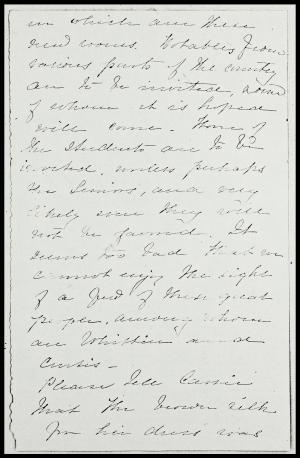 in which are these
rooms. Notables from
various parts of the country
are to be invited, some
of whom it is hoped
will come. None of
the students are to be
invited, unless perhaps
the Seniors, and very
likely even they will
not be favored. It
seems too bad that we
cannot enjoy the sight
of a few of these great
people, among whom
are Whittier and
Curtis.
Please tell Cassie
that the brown silk
for her dress was